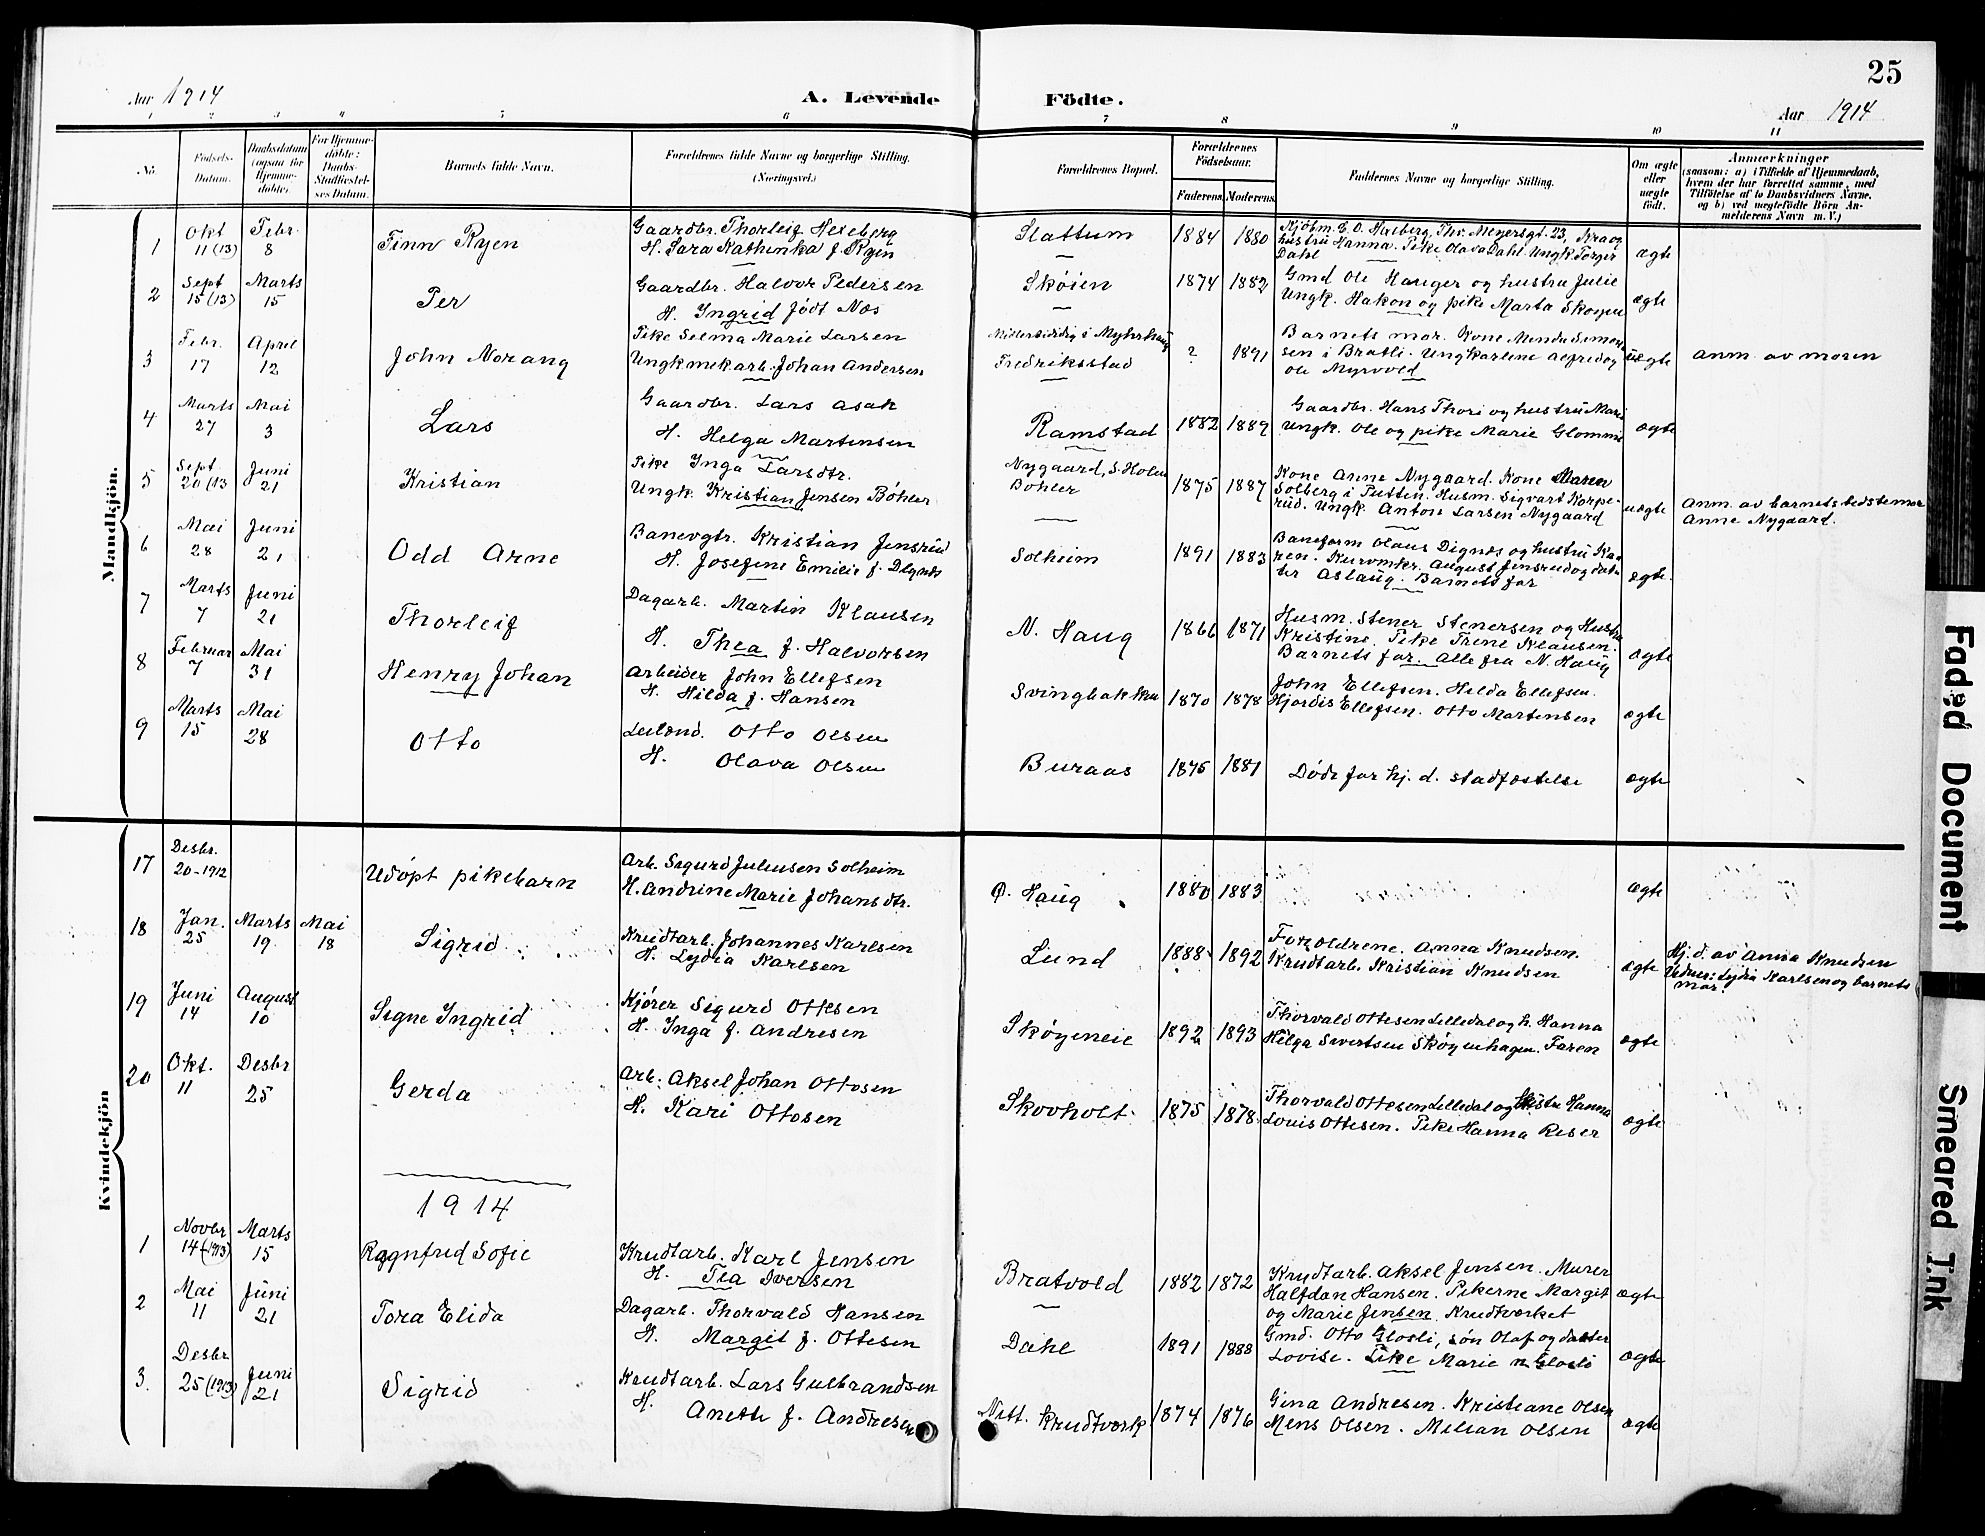 25
Aar 1914 A. Levende Födte. Aar 1914
1 2 3 4 5 6 7 8 9 10 11
No. Födsels-Datum. Daabsdatum (ogsaa for Hjemme-döbte). For Hjemme-döbte: Daabs-Stadfæstel-ses Datum. Barnets fulde Navn. Forældrenes fulde Navne og borgerlige Stilling. (Næringsvei.) Forældrenes Bopæl. Forældrenes Födselsaar. Faderens. Moderens. Faddernes Navne og borgerlige Stilling. Om ægte eller uægte födt. Anmærkninger (saasom: a) i Tilfælde af Hjemmedaab, hvem der har forrettet samme, med Tilföielse af to Daabsvidners Navne, og b) ved uegtefödte Börn An-melderens Navn m. V.)
Mandkjön.
1 Okt 11 (13) Febr. 8 Finn Ryen Gaardbr. Thorleif Hexeberg
H. Sara Kathinka f Ryen Slattum 1884 1880 Kjøbm. E. O. Hexeberg, Thv. Meyersgt. 23, Kra og
hustru Hanna. Pike Olava Dahl Ungk Torger
Dahl ægte
2 Sept 15 (13) Marts 15 Per Gaardbr. Halvor Pedersen
H. Ingrid født Næs Skøien 1874 1882 Gmd Ole Hauger og hustru Julie
Ungk. Hakon og pike Marta Skøyen ægte
3 Febr. 17 April 12 John Norang Pike Selma Marie Larsen
Ungk mek arb. Johan Andersen Midlertididig i Myhrhaug
Fredriksstad ? 1891 Barnets mor. Kone Minda Simon
sen i Bratli. Ungkarlene Alfred og
Ole Myrvold uægte anm. av moren
4 Marts 27 Mai 3 Lars Gaardbr. Lars Asak
H. Helga Martinsen Ramstad 1882 1889 Gaardbr. Hans Thori og hustru Mari
Ungk. Ole og pike Marie Glommi ægte
5 Sept 20 (13 Juni 21 Kristian Pike Inga Larsdtr.
Ungk. Kristian Jensen Bøhler Nygaard, S. Holm
Bøhler 1875 1887 Kone Anne Nygaard. Kone Maren
Solberg i Putten. Husm. Sigvart Korpe-
rud. Ungk. Anton Larsen Nygaard uægte Anm. av barnets bedstemor
Anne Nygaard.
6 Mai 28 Juni 21 Odd Arne Banevgtr. Kristian Jensrud
H. Josefine Emilie f. Dignæs Solheim 1891 1883 Baneform Olaus Dignæs og hustru Ka
ren. August Jensrud og dat
ter Aslaug. Barnets far ægte.
7 Marts 7 Juni 21 Thorleif Dagarb. Martin Klausen
H. Thea f. Halvorsen N. Haug 1866 1871 Husm. Stener Stenersen og Hustru
Kristine. Pike Trene Klausen.
Barnets far. Alle fra N. Haug ægte
8 Februar 7 Mai 31 Henry Johan Arbeider John Ellefsen
H. Hilda f. Hansen Svingbakken 1870 1878 John Ellefsen. Hilda Ellefsen.
Hjørdis Ellefsen. Otto Martensen ægte
9 Marts 15 Mai 28 Otto Leilænd. Otto Olsen
H. Olava Olsen Buraas 1875 1881 Døde før hj. d. stadfæstelse ægte
Kvindekjön
17 Desbr. 20-1912 Udøpt pikebarn Arb. Sigurd Juliusen Solheim
H. Andrine Marie Johansdtr. Ø. Haug 1880 1883 ægte
18 Jan. 25 Marts 19 Mai 18 Sigrid Krudtarb. Johannes Karlsen
H. Lydia Karlsen Lund 1888 1892 Forældrene. Anna Knudsen.
Krudtarb. Kristian Knudsen ægte Hj. d. av Anna Knudsen
Vidner: Lydia Karlsen og barnets
mor.
19 Juni 14 August 10 Signe Ingrid Kjører Sigurd Ottesen
H. Inga f. Andresen Skøyeneie 1892 1893 Thorvald Ottesen Lilledal og h. Hanna
Helga Sivertsen Skøyenhagen. Faren ægte
20 Okt. 11 Desbr 25 Gerda Arb. Aksel Johan Ottosen
H. Kari Ottosen Skovholt 1875 1878 Thorvald Ottesen Lilledal og hustru Hanna
Louis Ottesen. Pike Hanna Reser ægte
1914
1 Novbr 14 (1913) Marts 15 Ragnfrid Sofie Krudtarb. Karl Jensen
H. Tea Iversen Bratvold 1882 1872 Krudtarb. Aksel Jensen. Murer
Halfdan Hansen. Pikerne Margit
og Marie Jensen Krudtværket ægte
2 Mai 11 Juni 21 Tora Elida Dagarb. Thorvald Hansen
H. Margit f. Ottesen Dahl 1891 1888 Gmd. Otto Glosli, søn Olaf og datter
Lovise. Pike Marie n. Glosli ægte
3. Desbr 25 (1913) Juni 21 Sigrid Krudtarb. Lars Gulbrandsen
H. Aneth f. Andresen Nitt. Krudtværk 1874 1876 Gina Andresen. Kristiane Olsen
Mens Olsen. Milian Olsen ægte
Faded Document
Smeared Ink